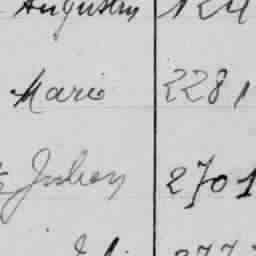 Augustin 124
Mario 2281
Julien 2701